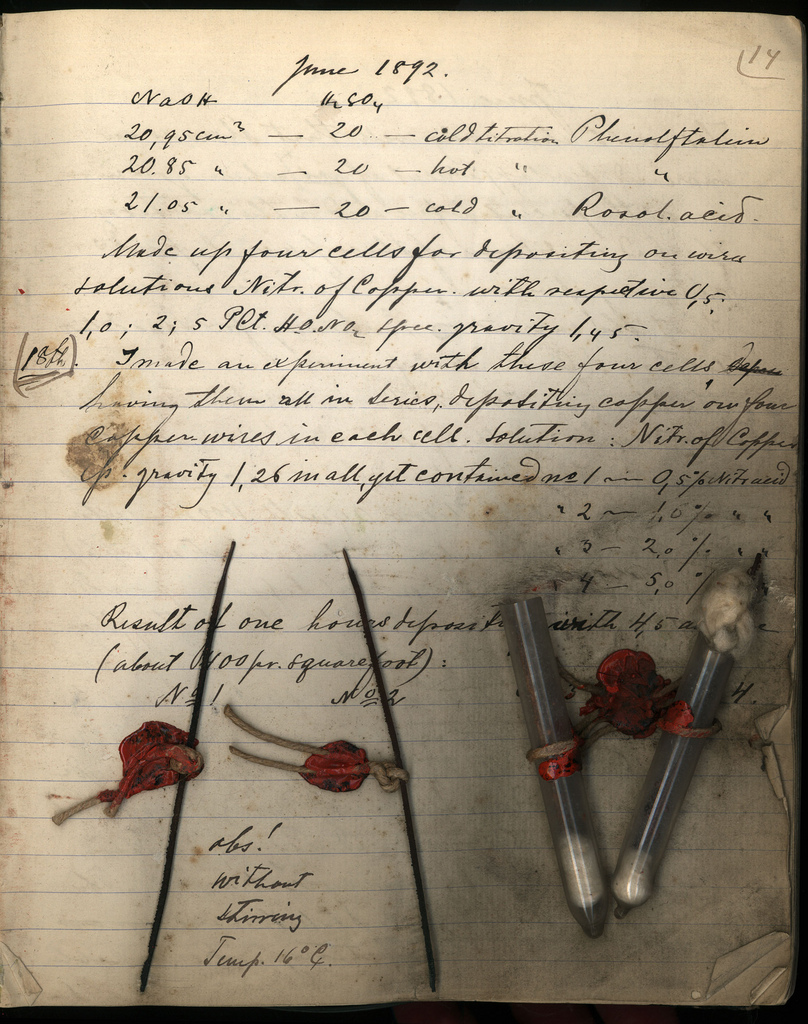 14
June 1892.
NaOH H₂SO₄
20,95 cm³ — 20 — cold titration Phenolftalein
20.85 " — 20 — hot " "
21.05 " — 20 — cold " Rosol. acid.
Made up four cells for depositing on wires
solutions Nitr. of Copper. with respective 0,5;
1,0; 2; 5 PCt. HO.NO₂ spec. gravity 1,45.
18th. I made an experiment with these four cells
having them all in series, depositing copper on four
copper wires in each cell. Solution: Nitr. of Copper
sp. gravity 1,26 in all, yet contained no 1 — 0,5% Nitr acid
" 2 — 1,0% " "
" 3 — 2,0% " "
4 — 5,0%
Result of one hours with 4,5
(about 400 pr. square foot):
No 1 No 2 4.
obs!
without
stirring
Temp. 16° C.